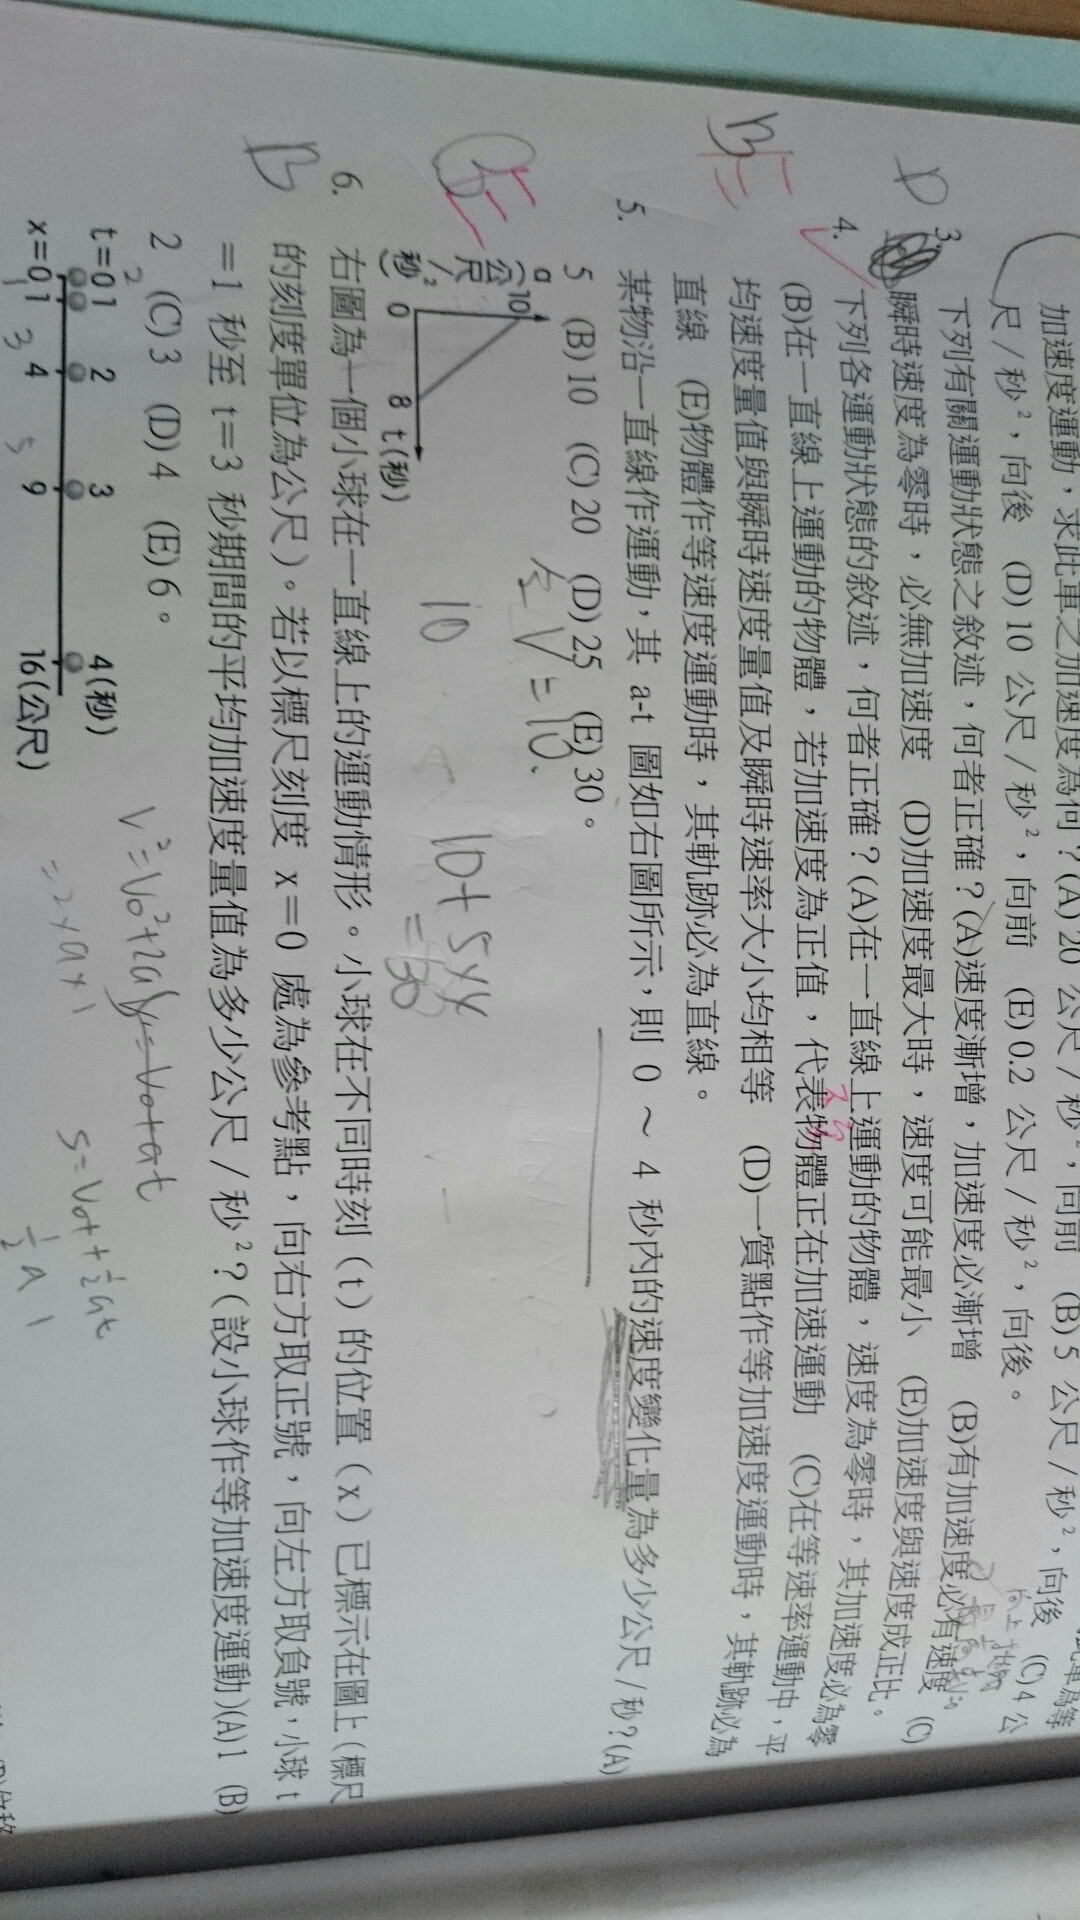 加速度運動，求此車之加速度為何？(A) 20 公尺／秒²，向前 (B) 5 公尺／秒²，向後 (C) 4 公
尺／秒²，向後 (D) 10 公尺／秒²，向前 (E) 0.2 公尺／秒²，向後。
D 3. 下列有關運動狀態之敘述，何者正確？(A)速度漸增，加速度必漸增 (B)有加速度必有速度 (C)
瞬時速度為零時，必無加速度 (D)加速度最大時，速度可能最小 (E)加速度與速度成正比。
4. 下列各運動狀態的敘述，何者正確？(A)在一直線上運動的物體，速度為零時，其加速度必為零
(B)在一直線上運動的物體，若加速度為正值，代表物體正在加速運動 (C)在等速率運動中，平
均速度量值與瞬時速度量值及瞬時速率大小均相等 (D)一質點作等加速度運動時，其軌跡必為
直線 (E)物體作等速度運動時，其軌跡必為直線。
5. 某物沿一直線作運動，其 a-t 圖如右圖所示，則 0 ～ 4 秒內的速度變化量為多少公尺／秒？(A)
5 (B) 10 (C) 20 (D) 25 (E) 30。
a
(公尺／秒²)
10
0
8
t(秒)
½V=10.
10
10+5×4
=30
B 6. 右圖為一個小球在一直線上的運動情形。小球在不同時刻（t）的位置（x）已標示在圖上（標尺
的刻度單位為公尺）。若以標尺刻度 x＝0 處為參考點，向右方取正號，向左方取負號，小球 t
＝1 秒至 t＝3 秒期間的平均加速度量值為多少公尺／秒²？（設小球作等加速度運動）(A) 1 (B)
2 (C) 3 (D) 4 (E) 6。
t=0 1 2 3 4(秒)
x=0 1 4 9 16(公尺)
1 3 5
V²=V₀²+2a
V=V₀+at
=2×a×1
S=V₀t+½at
½a 1